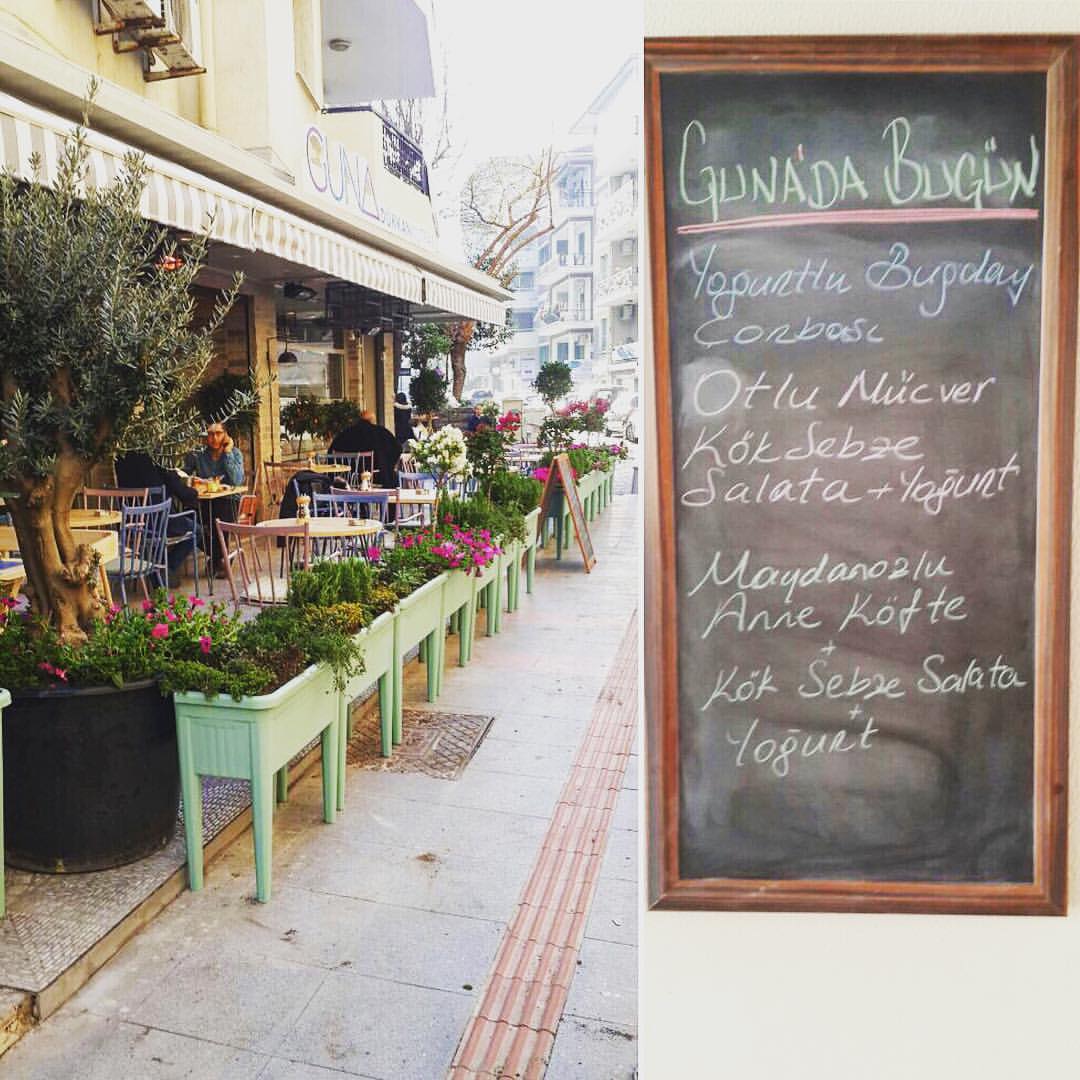 GUNA
GUNA'DA BUGÜN
Yoğurtlu Buğday
Çorbası
Otlu Mücver
Kök Sebze
Salata + Yoğurt
Maydanozlu
Anne Köfte
+
Kök Sebze Salata
+
Yoğurt